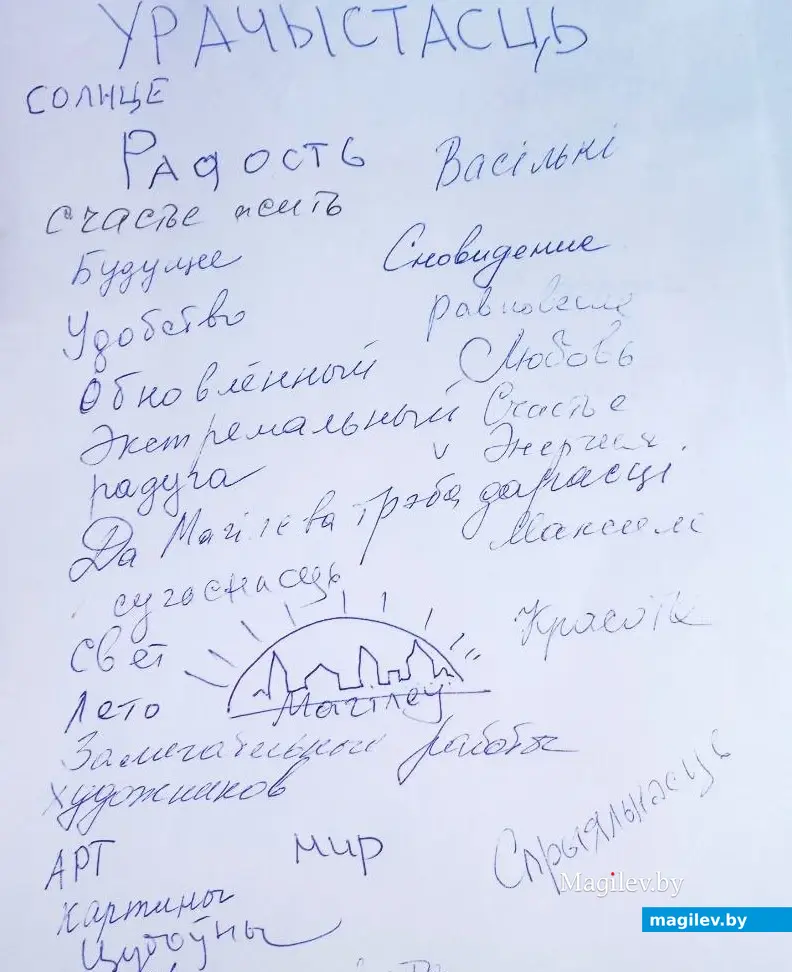 УРАЧЫСТАСЦЬ
СОЛНЦЕ
Радость
Васількі
счастье жить
Будущее
Сновидение
Удобство
равновесие
Обновлённый
Любовь
Экстремальный
Счастье
Энергия
радуга
Да Магілёва трэба дарасці
сугаснасць
Свет
Красота
Лето
Магілеў
Замечательные работы
художников
АРТ
мир
Спрыяльнасць
картины
Цудоўны
Magilev.by
magilev.by